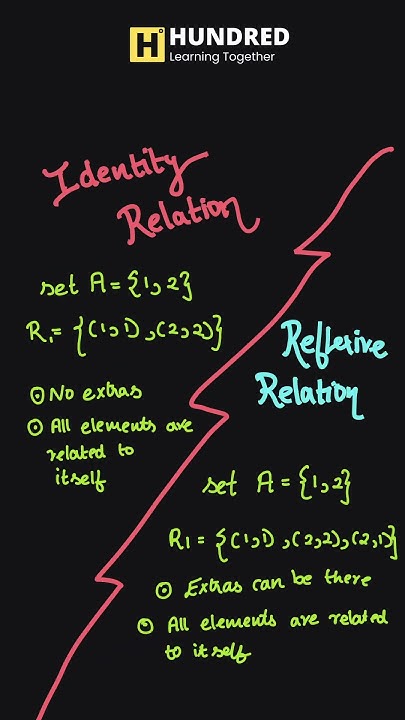 HUNDRED
Learning Together
Identity
Relation
set A = {1,2}
R₁ = {(1,1),(2,2)}
⊙ No extras
⊙ All elements are
related to
itself
Reflexive
Relation
set A = {1,2}
R1 = {(1,1),(2,2),(2,1)}
⊙ Extras can be there
⊙ All elements are related
to itself